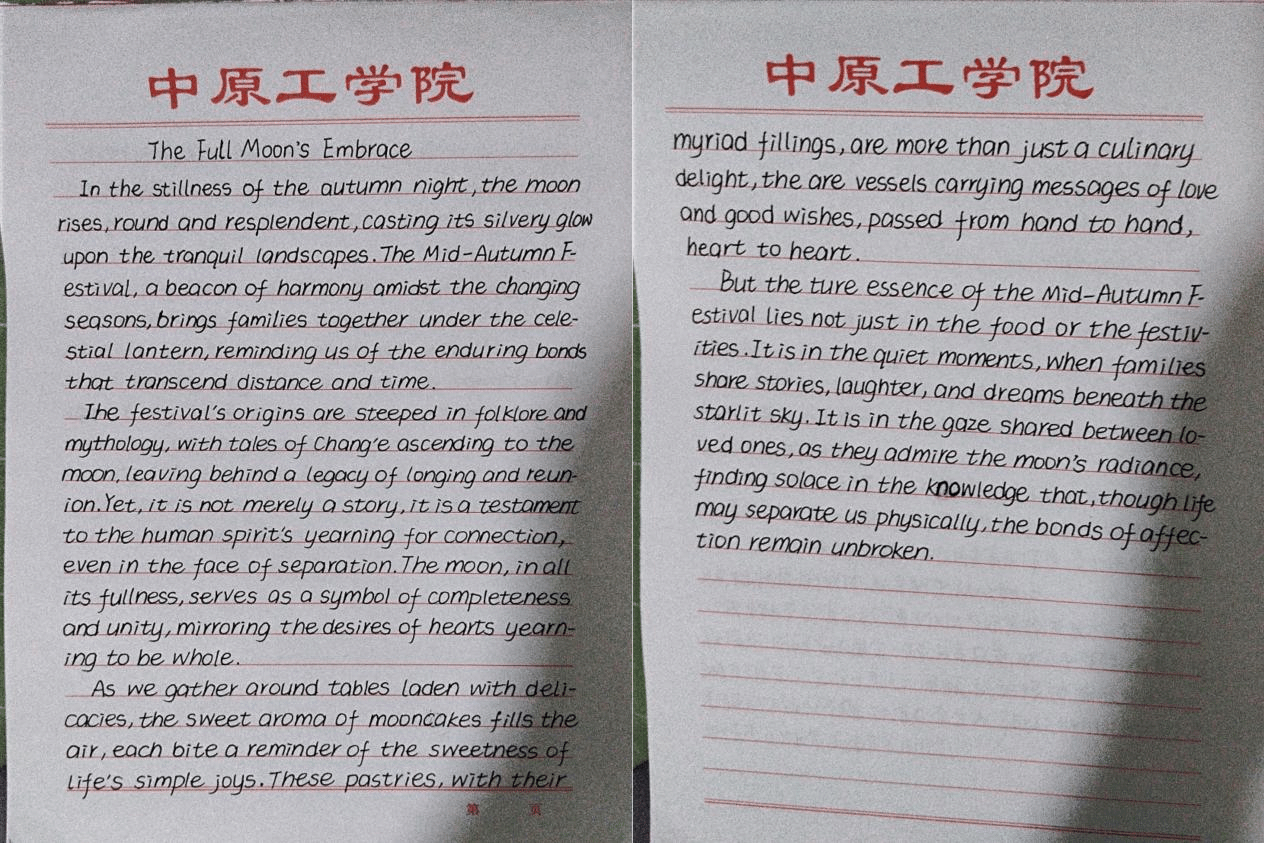 中原工学院
The Full Moon's Embrace
In the stillness of the autumn night, the moon
rises, round and resplendent, casting its silvery glow
upon the tranquil landscapes. The Mid-Autumn F-
estival, a beacon of harmony amidst the changing
seasons, brings families together under the cele-
stial lantern, reminding us of the enduring bonds
that transcend distance and time.
The festival's origins are steeped in folklore and
mythology, with tales of Chang'e ascending to the
moon, leaving behind a legacy of longing and reun-
ion. Yet, it is not merely a story, it is a testament
to the human spirit's yearning for connection,
even in the face of separation. The moon, in all
its fullness, serves as a symbol of completeness
and unity, mirroring the desires of hearts yearn-
ing to be whole.
As we gather around tables laden with deli-
cacies, the sweet aroma of mooncakes fills the
air, each bite a reminder of the sweetness of
life's simple joys. These pastries, with their
第 页
中原工学院
myriad fillings, are more than just a culinary
delight, the are vessels carrying messages of love
and good wishes, passed from hand to hand,
heart to heart.
But the ture essence of the Mid-Autumn F-
estival lies not just in the food or the festiv-
ities. It is in the quiet moments, when families
share stories, laughter, and dreams beneath the
starlit sky. It is in the gaze shared between lo-
ved ones, as they admire the moon's radiance,
finding solace in the knowledge that, though life
may separate us physically, the bonds of affec-
tion remain unbroken.